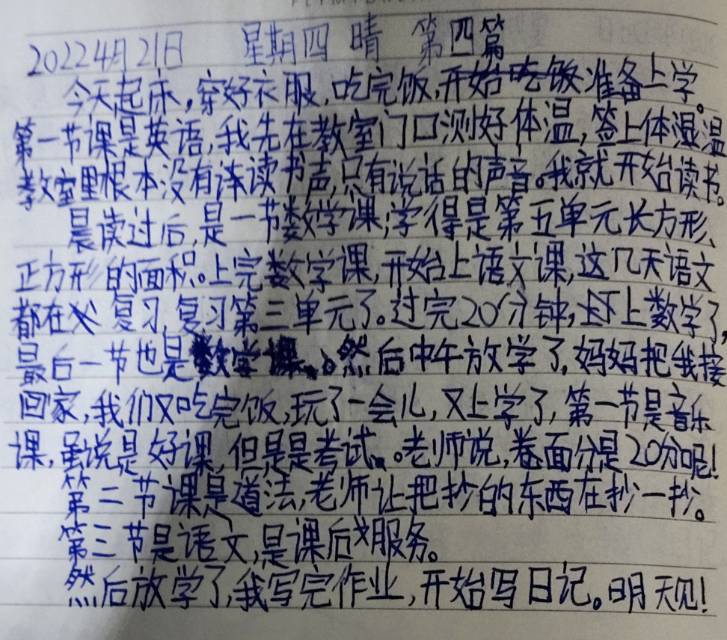 2022 4月21日 星期四 晴 第四篇
今天起床,穿好衣服,吃完饭,开始准备上学。
第一节课是英语,我先在教室门口测好体温,签上体温
教室里根本没有读书声,只有说话的声音。我就开始读书。
晨读过后,是一节数学课,学得是第五单元长方形、
正方形的面积。上完数学课,开始上语文课,这几天语文
都在复习,复习第三单元了。过完20分钟,上数学了,
最后一节也是数学课。然后中午放学了,妈妈把我接
回家,我们又吃完饭,玩了一会儿,又上学了,第一节是音乐
课,虽说是好课,但是是考试。老师说,卷面分是20分呢!
第二节课是道法,老师让把抄的东西在抄一抄。
第三节是语文,是课后服务。
然后放学了,我写完作业,开始写日记。明天见!